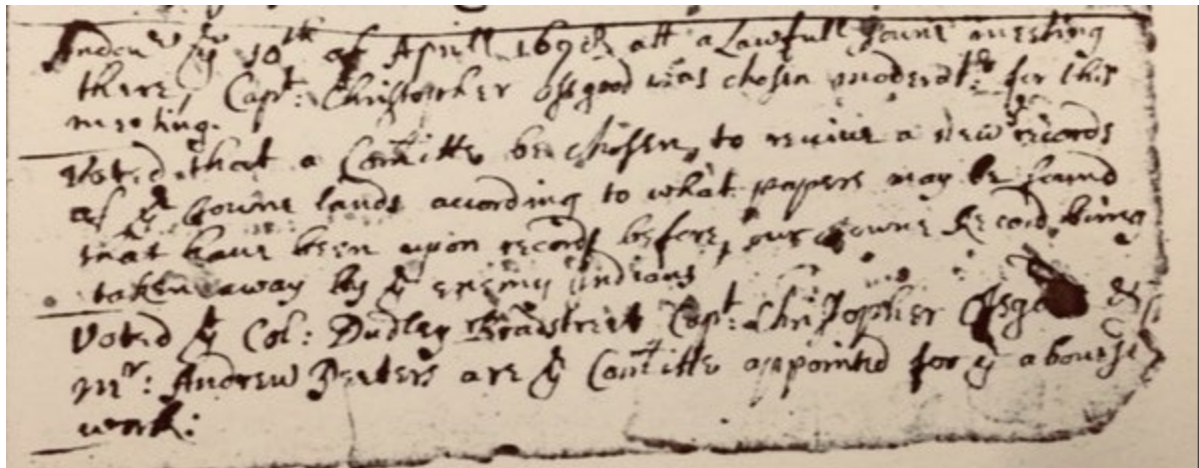 Andouer ye 10th of Aprill 1698 att a Lawfull Towne meeting
there, Capt: Christopher Osgood was chosen moderatr: for this
meeting.
Voted that a Comitte be chosen, to reviue a new records
of ye towne lands acording to what papers may be found
that haue been upon record before, our towne Record being
taken away by ye enemy Indians
Voted yt Col: Dudley Bradstreet Capt: Christopher Osgood &
mr: Andrew Peeters are ye Comitte appointed for ye abouesd
work: